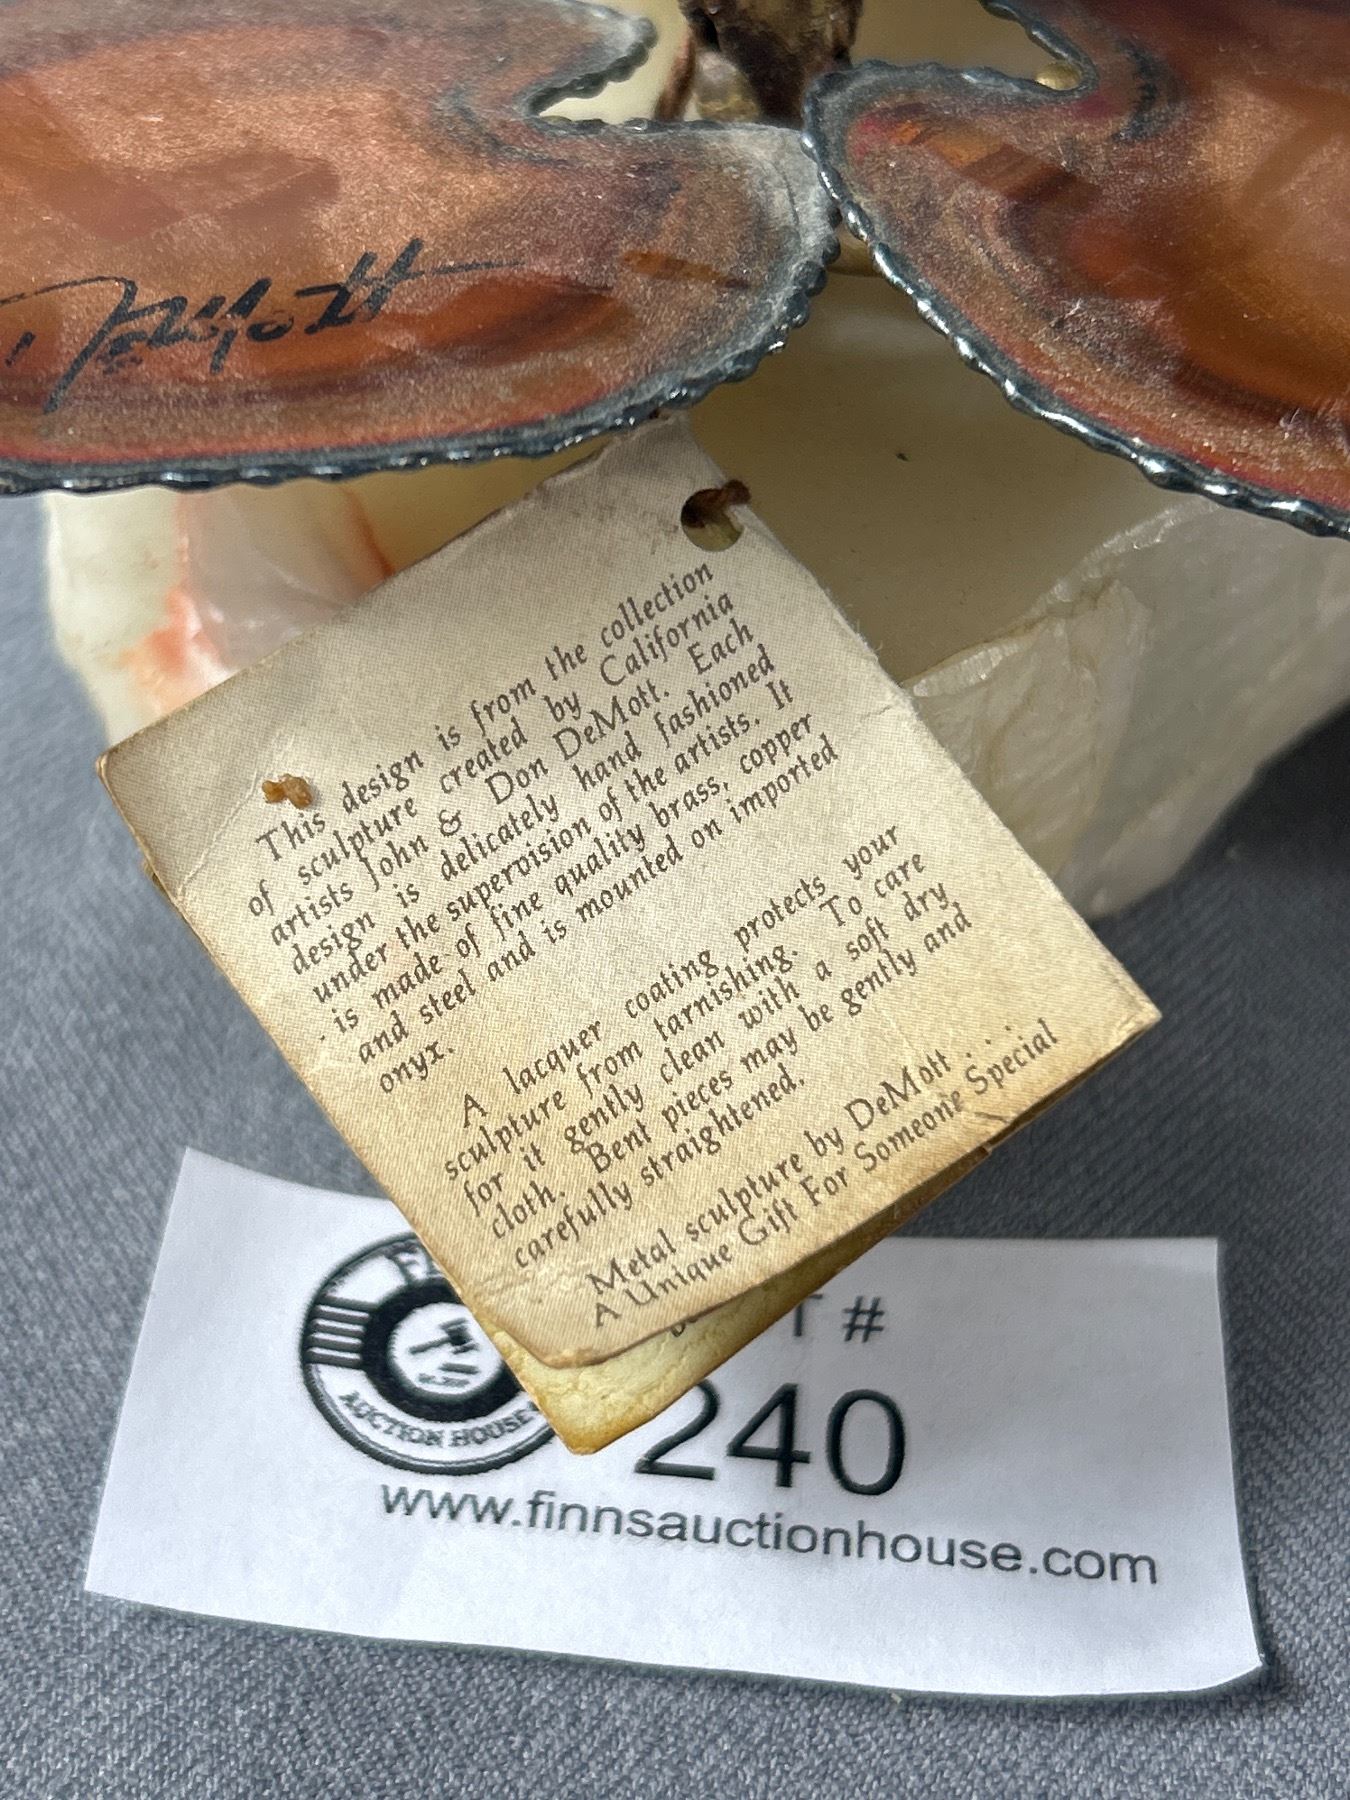 DeMott
This design is from the collection
of sculpture created by California
artists John & Don DeMott. Each
design is delicately hand fashioned
under the supervision of the artists. It
is made of fine quality brass, copper
and steel and is mounted on imported
onyx.
A lacquer coating protects your
sculpture from tarnishing. To care
for it gently clean with a soft dry
cloth. Bent pieces may be gently and
carefully straightened.
Metal sculpture by DeMott . . .
A Unique Gift For Someone Special
AUCTION HOUSE
T #
240
www.finnsauctionhouse.com